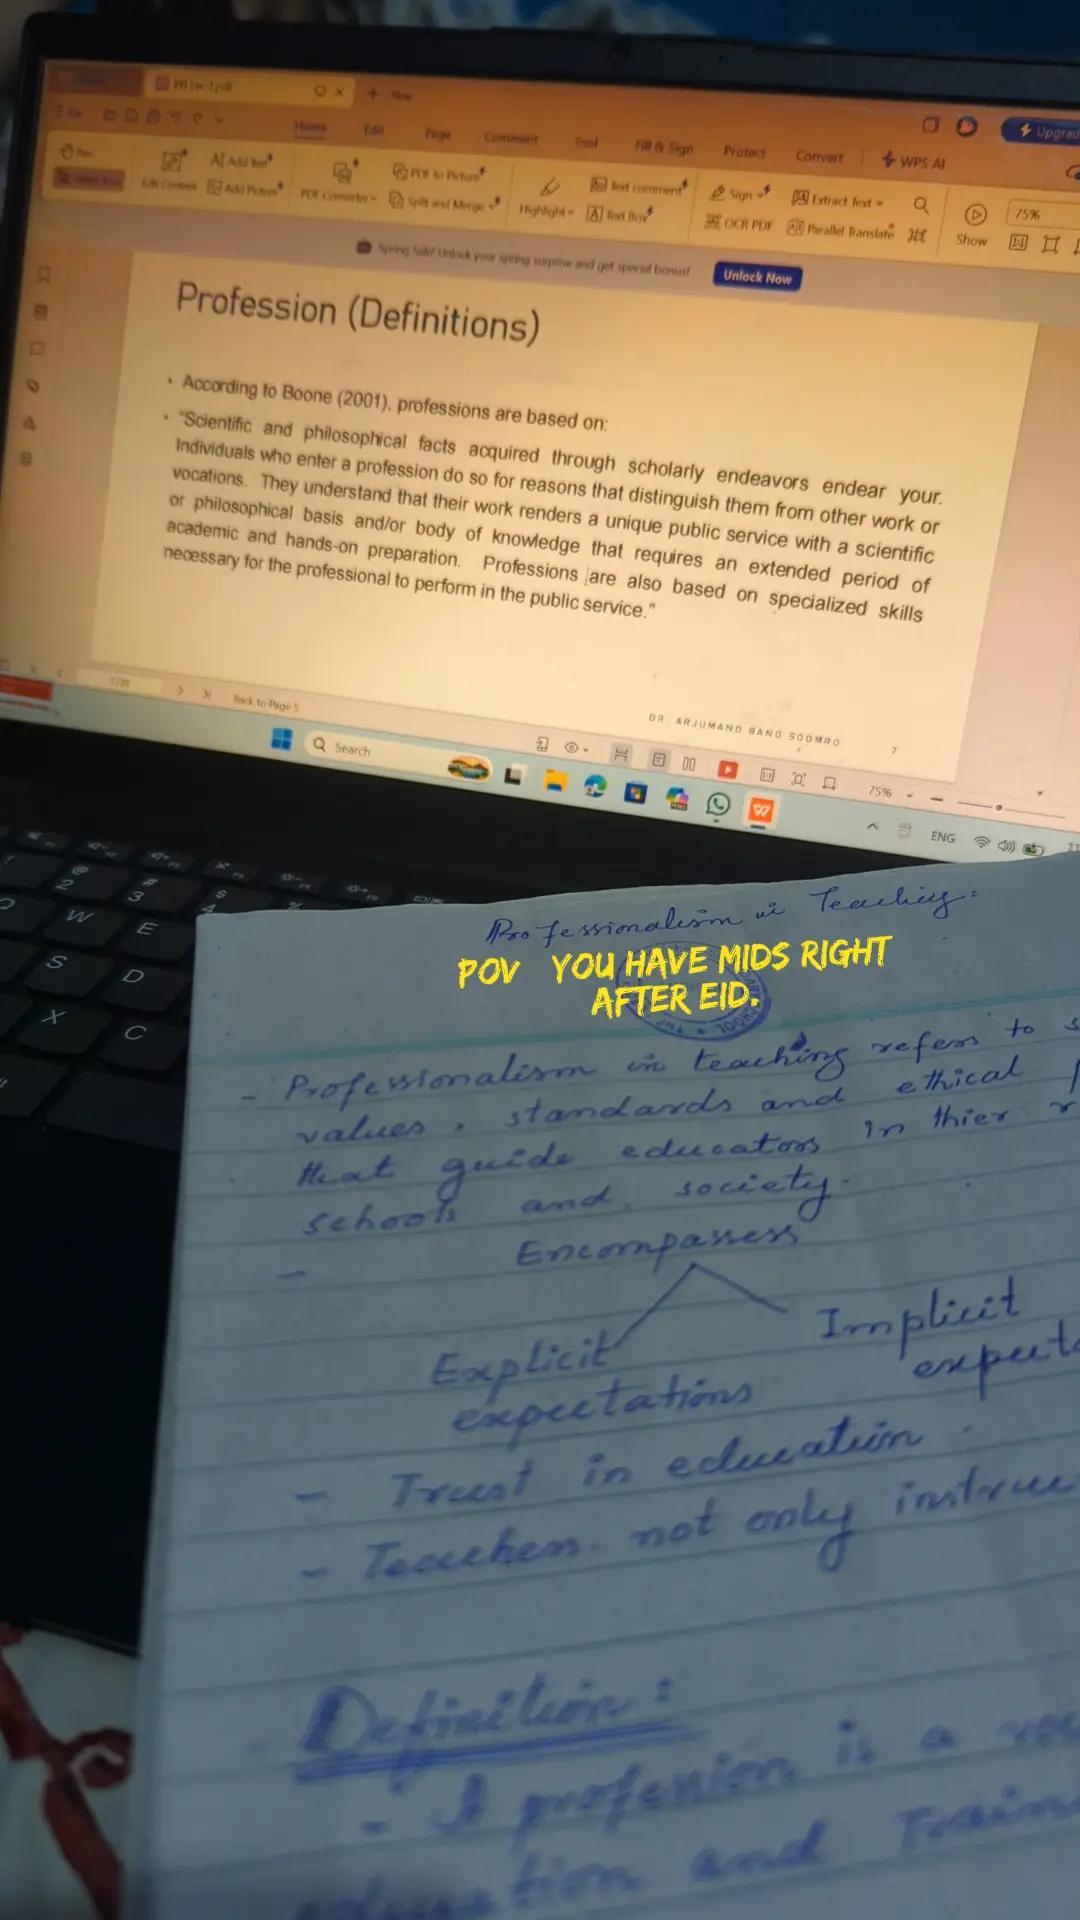 PB Lec 1.pdf
+ New
Home Edit Page Comment Tool Fill & Sign Protect Convert WPS AI
Upgrad
Edit Content
AI Add Text
Add Picture
PDF Converter
PDF to Picture
Split and Merge
Highlight
Text comment
Text Box
Sign
OCR PDF
Extract Text
Parallel Translate
Show
75%
Spring Sale! Unlock your spring surprise and get special bonus!
Unlock Now
Profession (Definitions)
• According to Boone (2001), professions are based on:
• "Scientific and philosophical facts acquired through scholarly endeavors endear your.
Individuals who enter a profession do so for reasons that distinguish them from other work or
vocations. They understand that their work renders a unique public service with a scientific
or philosophical basis and/or body of knowledge that requires an extended period of
academic and hands-on preparation. Professions are also based on specialized skills
necessary for the professional to perform in the public service."
DR. ARJUMAND BANO SOOMRO
7
Back to Page 5
75%
Search
ENG
2 3 4
W E
S D
X C
Professionalism in Teaching:
POV YOU HAVE MIDS RIGHT
AFTER EID.
- Professionalism in teaching refers to
values, standards and ethical
that guide educators in thier
schools and society.
- Encompassess
Explicit
expectations
Implicit
expecta
- Trust in education.
- Teachers not only instruc
Definition:
- A profession is a voc
and